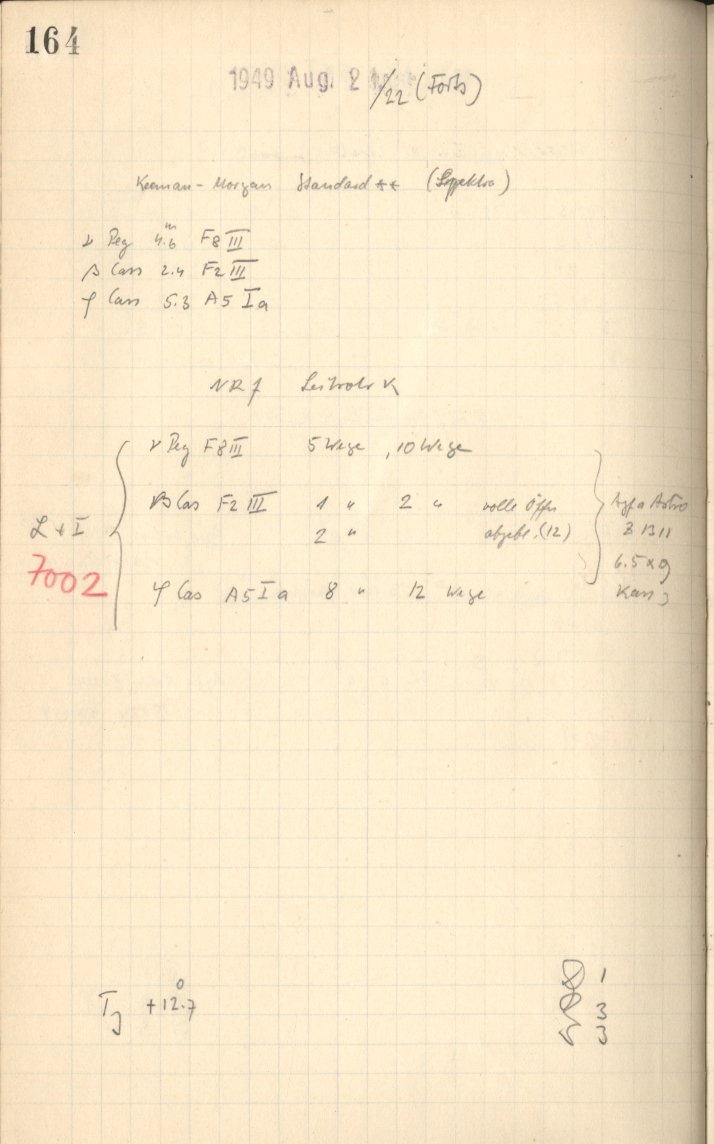 164
1949 Aug. 21/22 (Forts)
Keenan-Morgan Standard ** (Spektro)
ν Peg 4.6ᵐ F8 III
β Cass 2.4 F2 III
φ Cass 5.3 A5 Ia
NRf Leitrohr K
ν Peg F8 III 5 Wege, 10 Wege
β Cas F2 III 1 " 2 " volle Öffn
2 " abgebl. (12)
φ Cas A5 Ia 8 " 12 Wege
L + I
7002
Agfa Astro
Z 1311
6.5 x 9
Kass 3
+12.7°
1
3
3